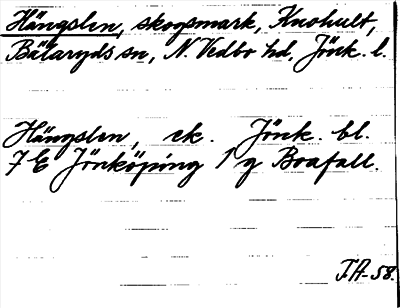 Hängslen, skogsmark, Knohult,
Bälaryds sn, N. Vedbo hd, Jönk. l.
Hängslen, ek. Jönk. bl.
7 E Jönköping 1 g Boafall.
F.A-58.